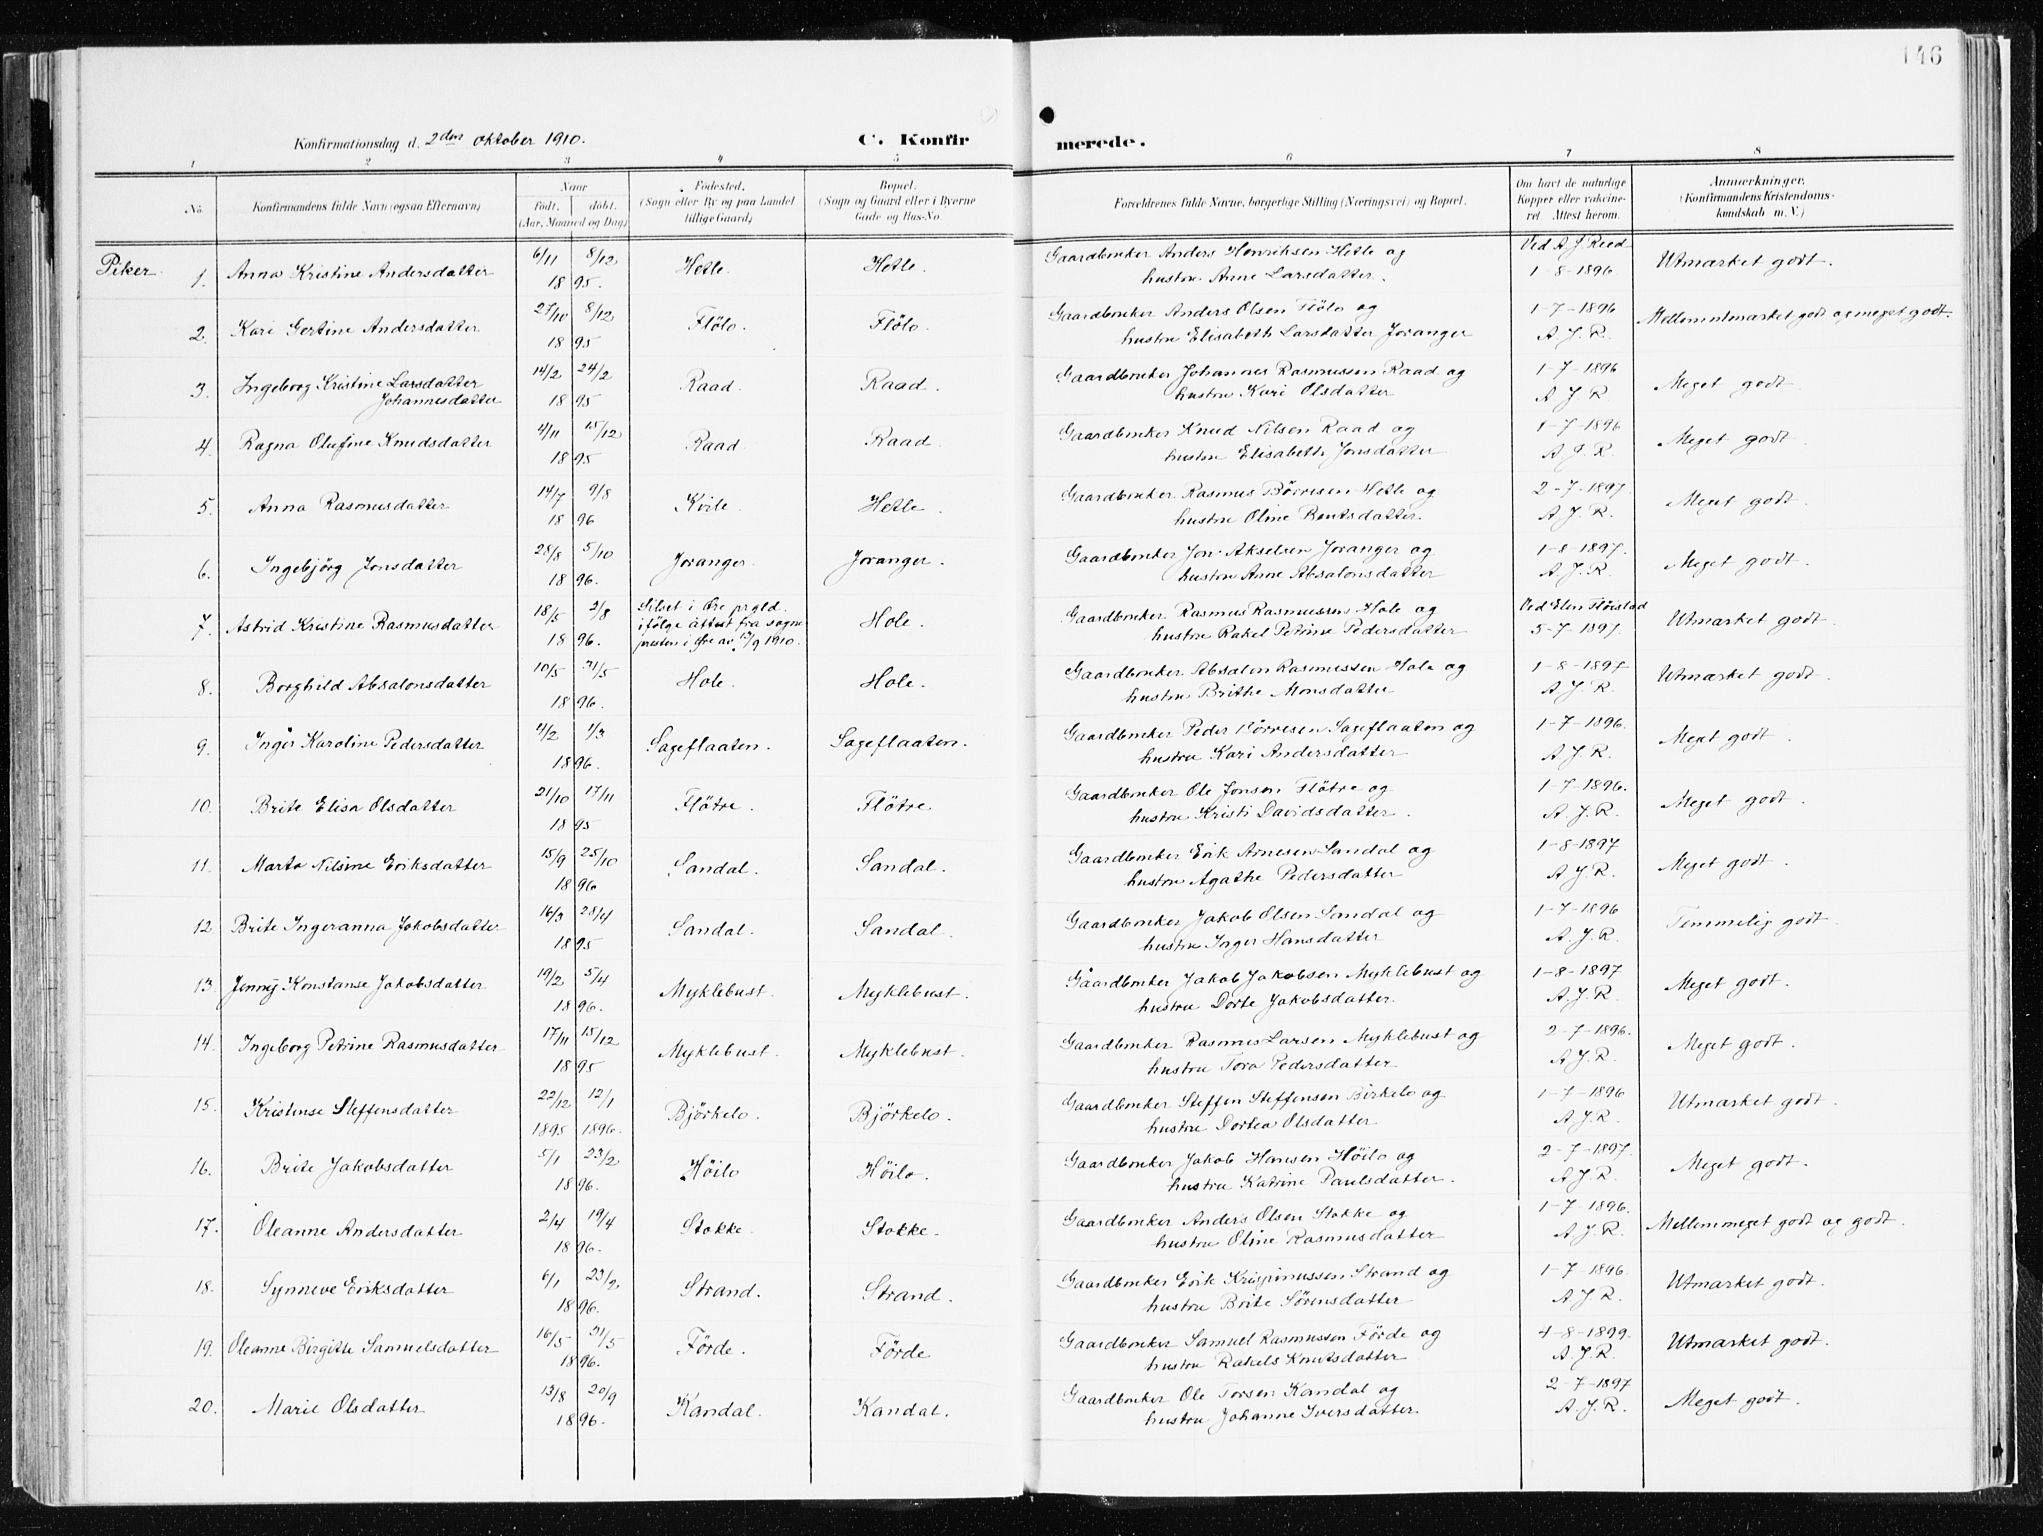 146
Konfirmationsdag d. 2den oktober 1910.
C. Konfirmerede.
1 2 3 4 5 6 7 8
No.
Konfirmandens fulde Navn (ogsaa Efternavn)
Naar
Født. døbt.
(Aar, Maaned og Dag)
Fødested.
(Sogn eller By og paa Landet
tillige Gaard)
Bopæl.
(Sogn og Gaard eller i Byerne
Gade og Hus-No.
Forældrenes fulde Navne, borgerlige Stilling (Næringsvei) og Bopæl.
Om havt de naturlige
Kopper eller vakcine-
ret Attest herom.
Anmærkninger.
(Konfirmandens Kristendoms-
kundskab m. V.)
Piker.
1. Anna Kristine Andersdatter 6/11 8/12 1895. Hetle. Hetle. Gaardbruker Anders Henriksen Hetle og
hustru Anne Larsdatter. Ved A J Reed 1-8-1896 Utmærket godt.
2. Kari Gertine Andersdatter 27/10 8/12 1895 Flölo. Flölo. Gaardbruker Anders Olsen Flölo og
hustru Elisabeth Larsdatter Joranger 1-7-1896 A. J. R. Mellem utmærket godt og meget godt.
3. Ingeborg Kristine Larsdatter
Johannesdatter 14/2 24/2 1895 Raad. Raad. Gaardbruker Johannes Rasmussen Raad og
hustru Kari Olsdatter 1-7-1896 A J R. Meget godt
4. Ragna Olufine Knudsdatter 4/11 15/12 1895 Raad. Raad. Gaardbruker Knud Nilsen Raad og
hustru Elisabeth Jonsdatter 1-7-1896 A. J. R. Meget godt.
5. Anna Rasmusdatter 14/7 9/8 1896 Kvile. Hetle. Gaardbruker Rasmus Börresen Hetle og
hustru Oline Bentsdatter. 2-7-1897. A. J. R. Meget godt.
6. Ingebjørg Jonsdatter 28/8 5/10 1896. Joranger. Joranger. Gaardbruker Jon Akselsen Joranger og
hustru Anne Absalonsdatter 1-8-1897. A. J. R. Meget godt.
7. Astrid Kristine Rasmusdatter 18/5 2/8 1896. Silset i Øre prgld.
ifølge attest fra sogne
presten i Øre av 13/9 1910. Hole. Gaardbruker Rasmus Rasmussen Hole og
hustru Rakel Petrine Pedersdatter Ved Elen Fløistad 5-7-1897. Utmærket godt.
8. Borghild Absalonsdatter 10/5 31/5 1896. Hole. Hole. Gaardbruker Absalon Rasmussen Hole og
hustru Brithe Monsdatter 1-8-1897 A. J. R. Utmærket godt.
9. Inger Karoline Pedersdatter 4/2 1/3 1896. Sageflaaten. Sageflaaten. Gaardbruker Peder Börresen Sageflaaten og
hustru Kari Andersdatter 1-7-1896. A. J. R. Meget godt.
10. Brite Elisa Olsdatter 21/10 17/11 1895 Flötre. Flötre Gaardbruker Ole Jonsen Flötre og
hustru Kristi Davidsdatter. 1-7-1896. A. J. R. Meget godt.
11. Marta Nilsine Eriksdatter 15/9 25/10 1896 Sandal. Sandal. Gaardbruker Erik Arnesen Sandal og
hustru Agathe Pedersdatter 1-8-1897 A. J. R. Meget godt.
12 Brite Ingeranna Jakobsdatter 16/3 28/4 1895 Sandal. Sandal. Gaardbruker Jakob Olsen Sandal og
hustru Inger Hansdatter 1-7-1896 A. J. R. Temmelig godt.
13 Jenny Konstanse Jakobsdatter 19/2 5/4 1896. Myklebust. Myklebust. Gaardbruker Jakob Jakobsen Myklebust og
hustru Dorte Jakobsdatter. 1-8-1897 A. J. R. Meget godt.
14. Ingeborg Petrine Rasmusdatter 17/11 15/12 1895 Myklebust. Myklebust. Gaardbruker Rasmus Larsen Myklebust og
hustru Tora Pedersdatter 2-7-1896. A. J. R. Meget godt.
15. Kristense Steffensdatter 22/12 12/1 1895 1896. Björkelo. Björkelo. Gaardbruker Steffen Steffensen Birkelo og
hustru Dortea Olsdatter 1-7-1896 A. J. R. Utmærket godt.
16. Brite Jakobsdatter 5/1 23/2 1896. Höilo Höilo. Gaardbruker Jakob Hansen Höilo og
hustru Katrine Paulsdatter. 2-7-1897. A. J. R. Meget godt.
17. Oleanne Andersdatter 2/4 19/4 1896. Stokke Stokke. Gaardbruker Anders Olsen Stokke og
hustru Oline Rasmusdatter 1-7-1896. A. J. R. Mellem meget godt og godt.
18. Synneve Eriksdatter 6/1 23/2 1896. Strand. Strand. Gaardbruker Erik Krispinussen Strand og
hustru Brite Sörensdatter 1-7-1896. A. J. R. Utmærket godt.
19. Oleanne Birgitte Samuelsdatter 16/5 31/5 1896. Förde. Förde Gaardbruker Samuel Rasmussen Förde og
hustru Rakels Knutsdatter 4-8-1899. A. J. R. Utmærket godt.
20. Marie Olsdatter 13/8 20/9 1896. Kandal. Kandal. Gaardbruker Ole Torsen Kandal og
hustru Johanne Iversdatter. 2-7-1897 A. J. R. Meget godt.